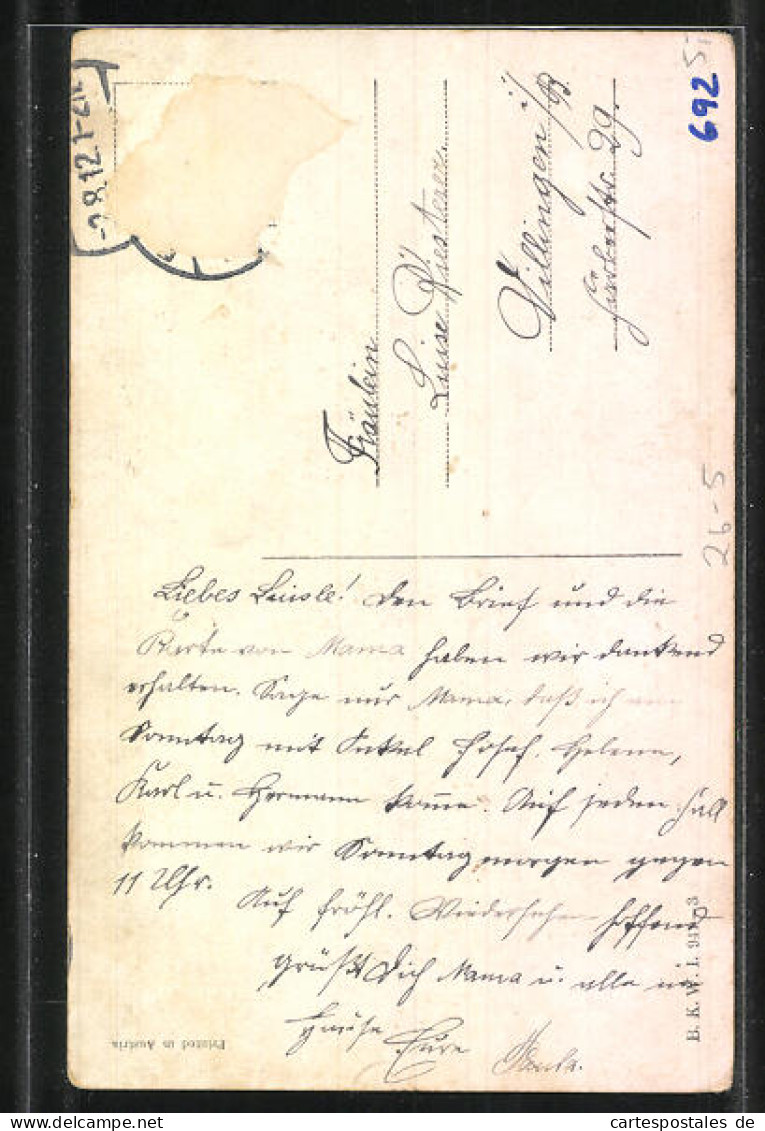 -2.8.12.1-2N
692
Si
Fräulein
Luise Riesterer
Villingen i/B.
29.
26-5
Liebes Luisle! Den Brief und die
Karte von Mama haben wir dankend
erhalten. Sage nur Mama, daß ich am
Sonntag mit Onkel Josef, Helene,
Karl u. Hermann kom̅e. Auf jeden Fall
kommen wir Sonntag morgen gegen
11 Uhr.
Auf fröhl. Wiedersehen hoffend
grüßt Dich Mama u. alle im
Hause Eure Paula.
Printed in Austria
B. K. W. I.
cartespostales de